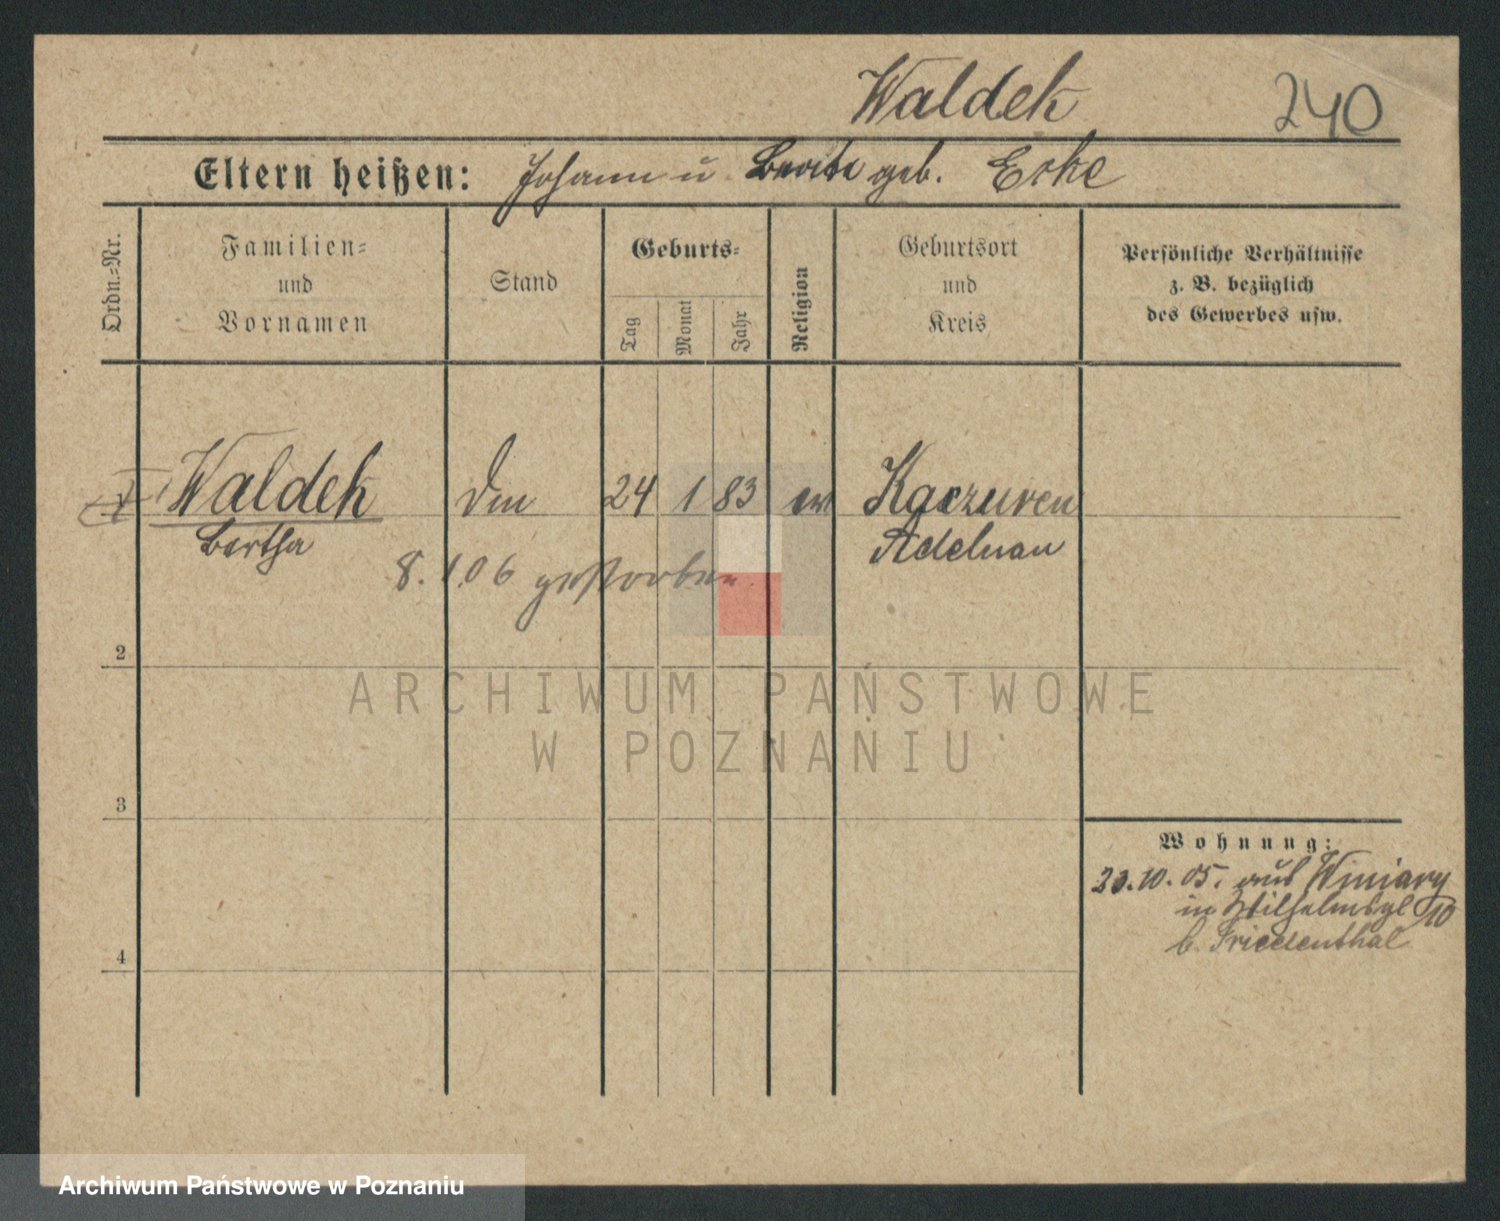 Waldek 240
Eltern heißen: Johann u geb. Eske
Ordn.-Nr.
Familien-
und
Vornamen
Stand
Geburts-
Tag
Monat
Jahr
Religion
Geburtsort
und
Kreis
Persönliche Verhältnisse
z. B. bezüglich
des Gewerbes usw.
Waldek 24 1 83 ev Kaczuren
Bertha Adelnau
8. 1. 06 gestorben
2
ARCHIWUM PAŃSTWOWE
W POZNANIU
3
Wohnung:
23. 10. 05. aus Winiary
in 10
b. Friedenthal
4
Archiwum Państwowe w Poznaniu